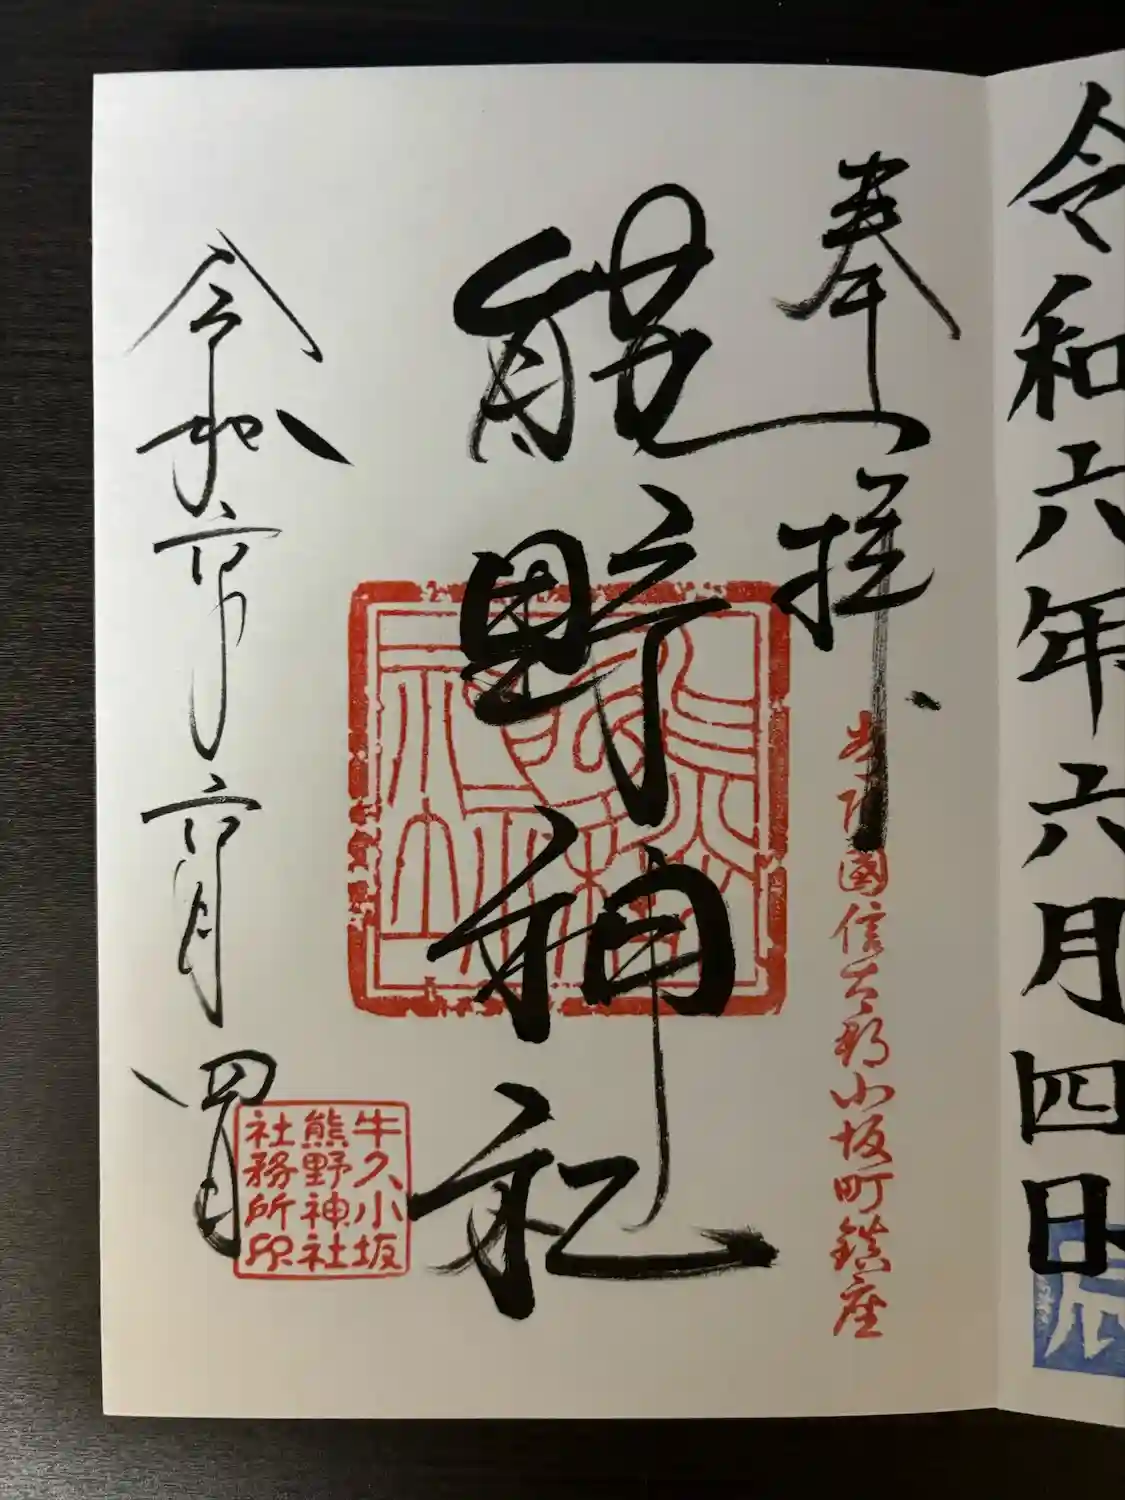 令和六年六月四日
辰
奉拝
常陸國信太郡小坂町鎮座
熊野神社
令和六年六月四日
牛久小坂
熊野神社
社務所印